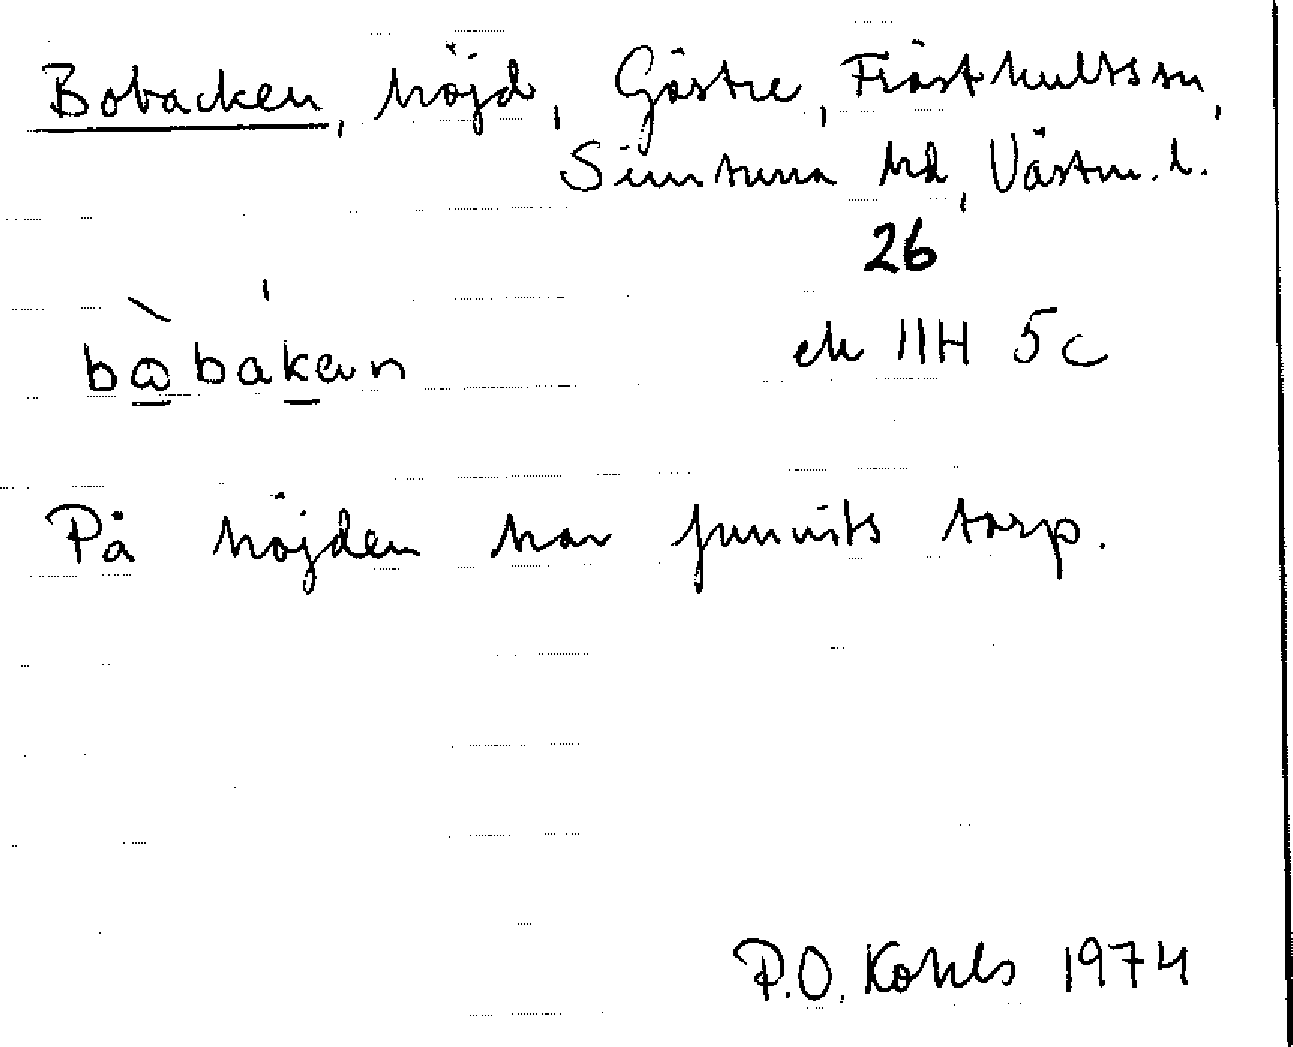 Bobacken, höjd, Göstre, Frösthults sn,
Simtuna hd, Västm. l.
26
ek 11H 5c
På höjden har funnits torp.
P.O. Kohls 1974